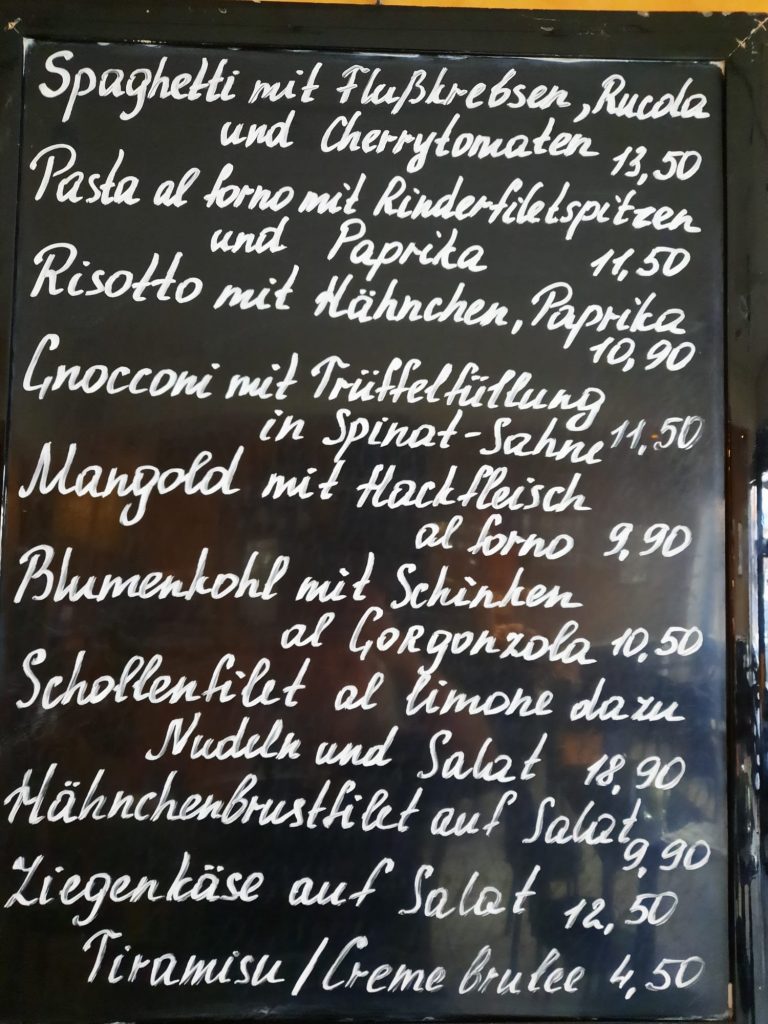 Spaghetti mit Flußkrebsen, Rucola
und Cherrytomaten 13,50
Pasta al forno mit Rinderfiletspitzen
und Paprika 11,50
Risotto mit Hähnchen, Paprika
10,90
Gnocconi mit Trüffelfüllung
in Spinat-Sahne 11,50
Mangold mit Hackfleisch
al forno 9,90
Blumenkohl mit Schinken
al Gorgonzola 10,50
Schollenfilet al limone dazu
Nudeln und Salat 18,90
Hähnchenbrustfilet auf Salat
9,90
Ziegenkäse auf Salat 12,50
Tiramisu/Creme brulee 4,50